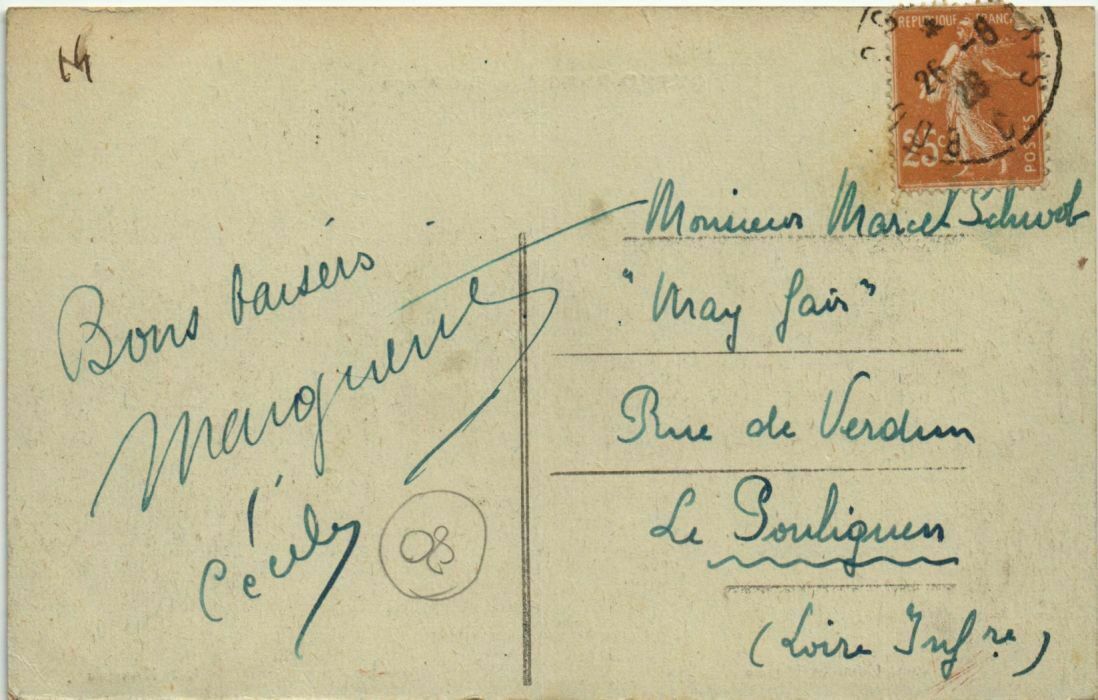 14
REPUBLIQUE FRANC
26 -8
28
25c
POSTES
Bons baisers
Marguerite
Cécile
98
Monsieur Marcel Schwob
"May fair"
Rue de Verdun
Le Pouliguen
(Loire Infre)